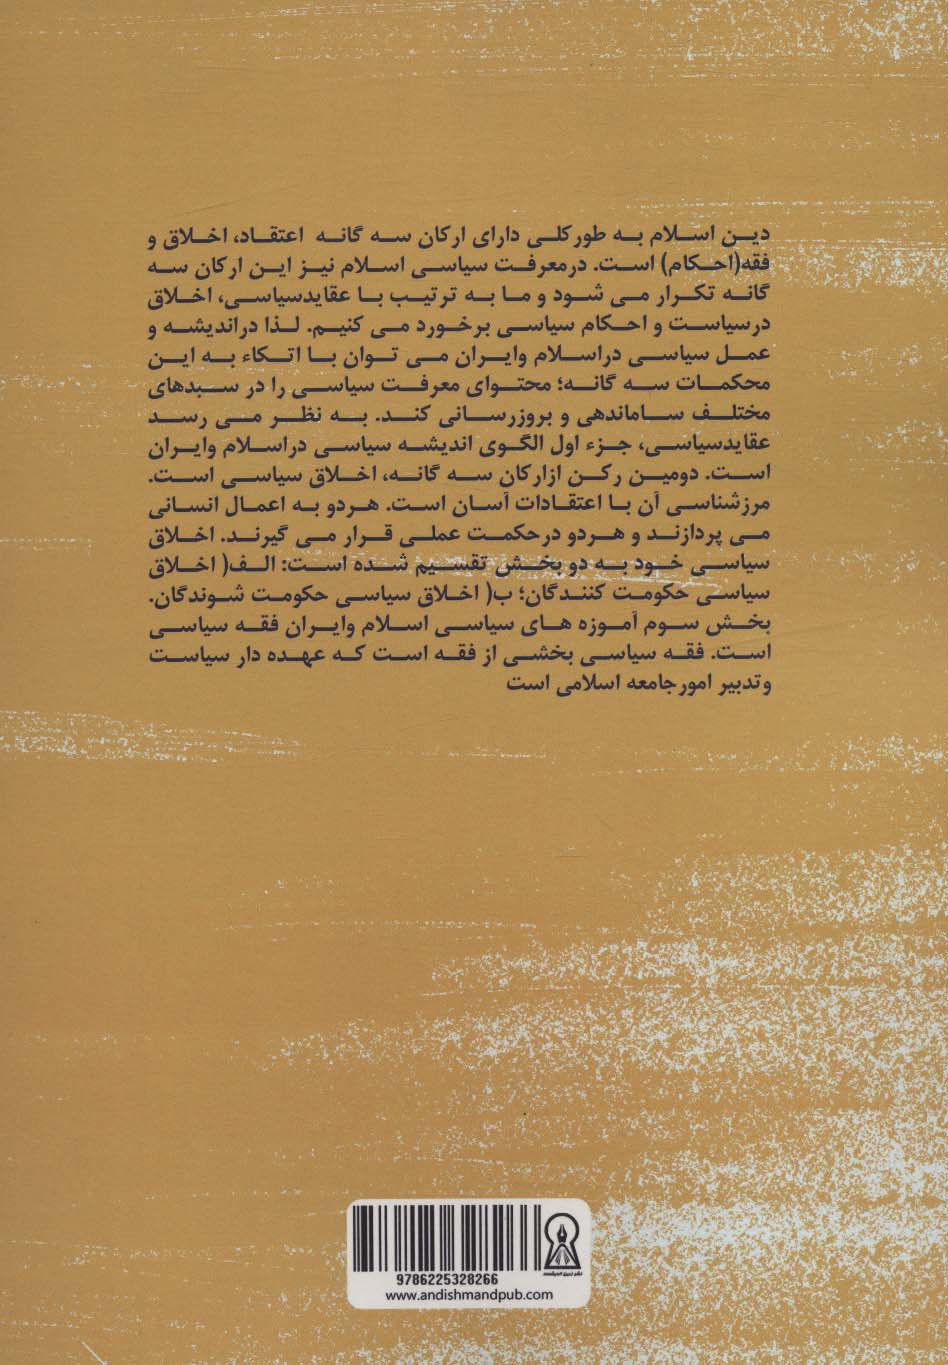 دین اسلام به طورکلی دارای ارکان سه گانه اعتقاد، اخلاق و
فقه(احکام) است. درمعرفت سیاسی اسلام نیز این ارکان سه
گانه تکرار می شود و ما به ترتیب با عقایدسیاسی، اخلاق
درسیاست و احکام سیاسی برخورد می کنیم. لذا دراندیشه و
عمل سیاسی دراسلام وایران می توان با اتکاء به این
محکمات سه گانه؛ محتوای معرفت سیاسی را در سبدهای
مختلف ساماندهی و بروزرسانی کند. به نظر می رسد
عقایدسیاسی، جزء اول الگوی اندیشه سیاسی دراسلام وایران
است. دومین رکن ازارکان سه گانه، اخلاق سیاسی است.
مرزشناسی آن با اعتقادات آسان است. هردو به اعمال انسانی
می پردازند و هردو درحکمت عملی قرار می گیرند. اخلاق
سیاسی خود به دو بخش تقسیم شده است: الف( اخلاق
سیاسی حکومت کنندگان؛ ب( اخلاق سیاسی حکومت شوندگان.
بخش سوم آموزه های سیاسی اسلام وایران فقه سیاسی
است. فقه سیاسی بخشی از فقه است که عهده دار سیاست
وتدبیر امورجامعه اسلامی است
نشر زرین اندیشمند
9786225328266
www.andishmandpub.com